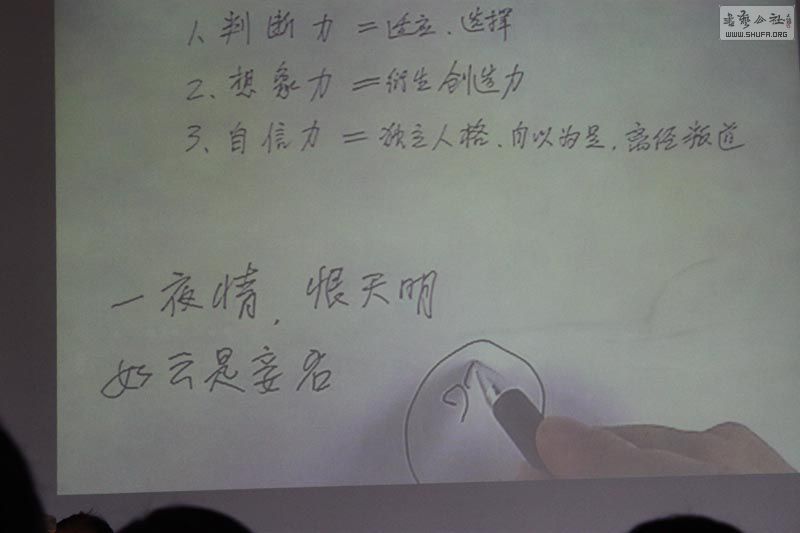 书艺公社
WWW.SHUFA.ORG
1、判断力=适应、选择
2、想象力=衍生创造力
3、自信力=独立人格、自以为是,离经叛道
一夜情,恨天明
如云是妾名